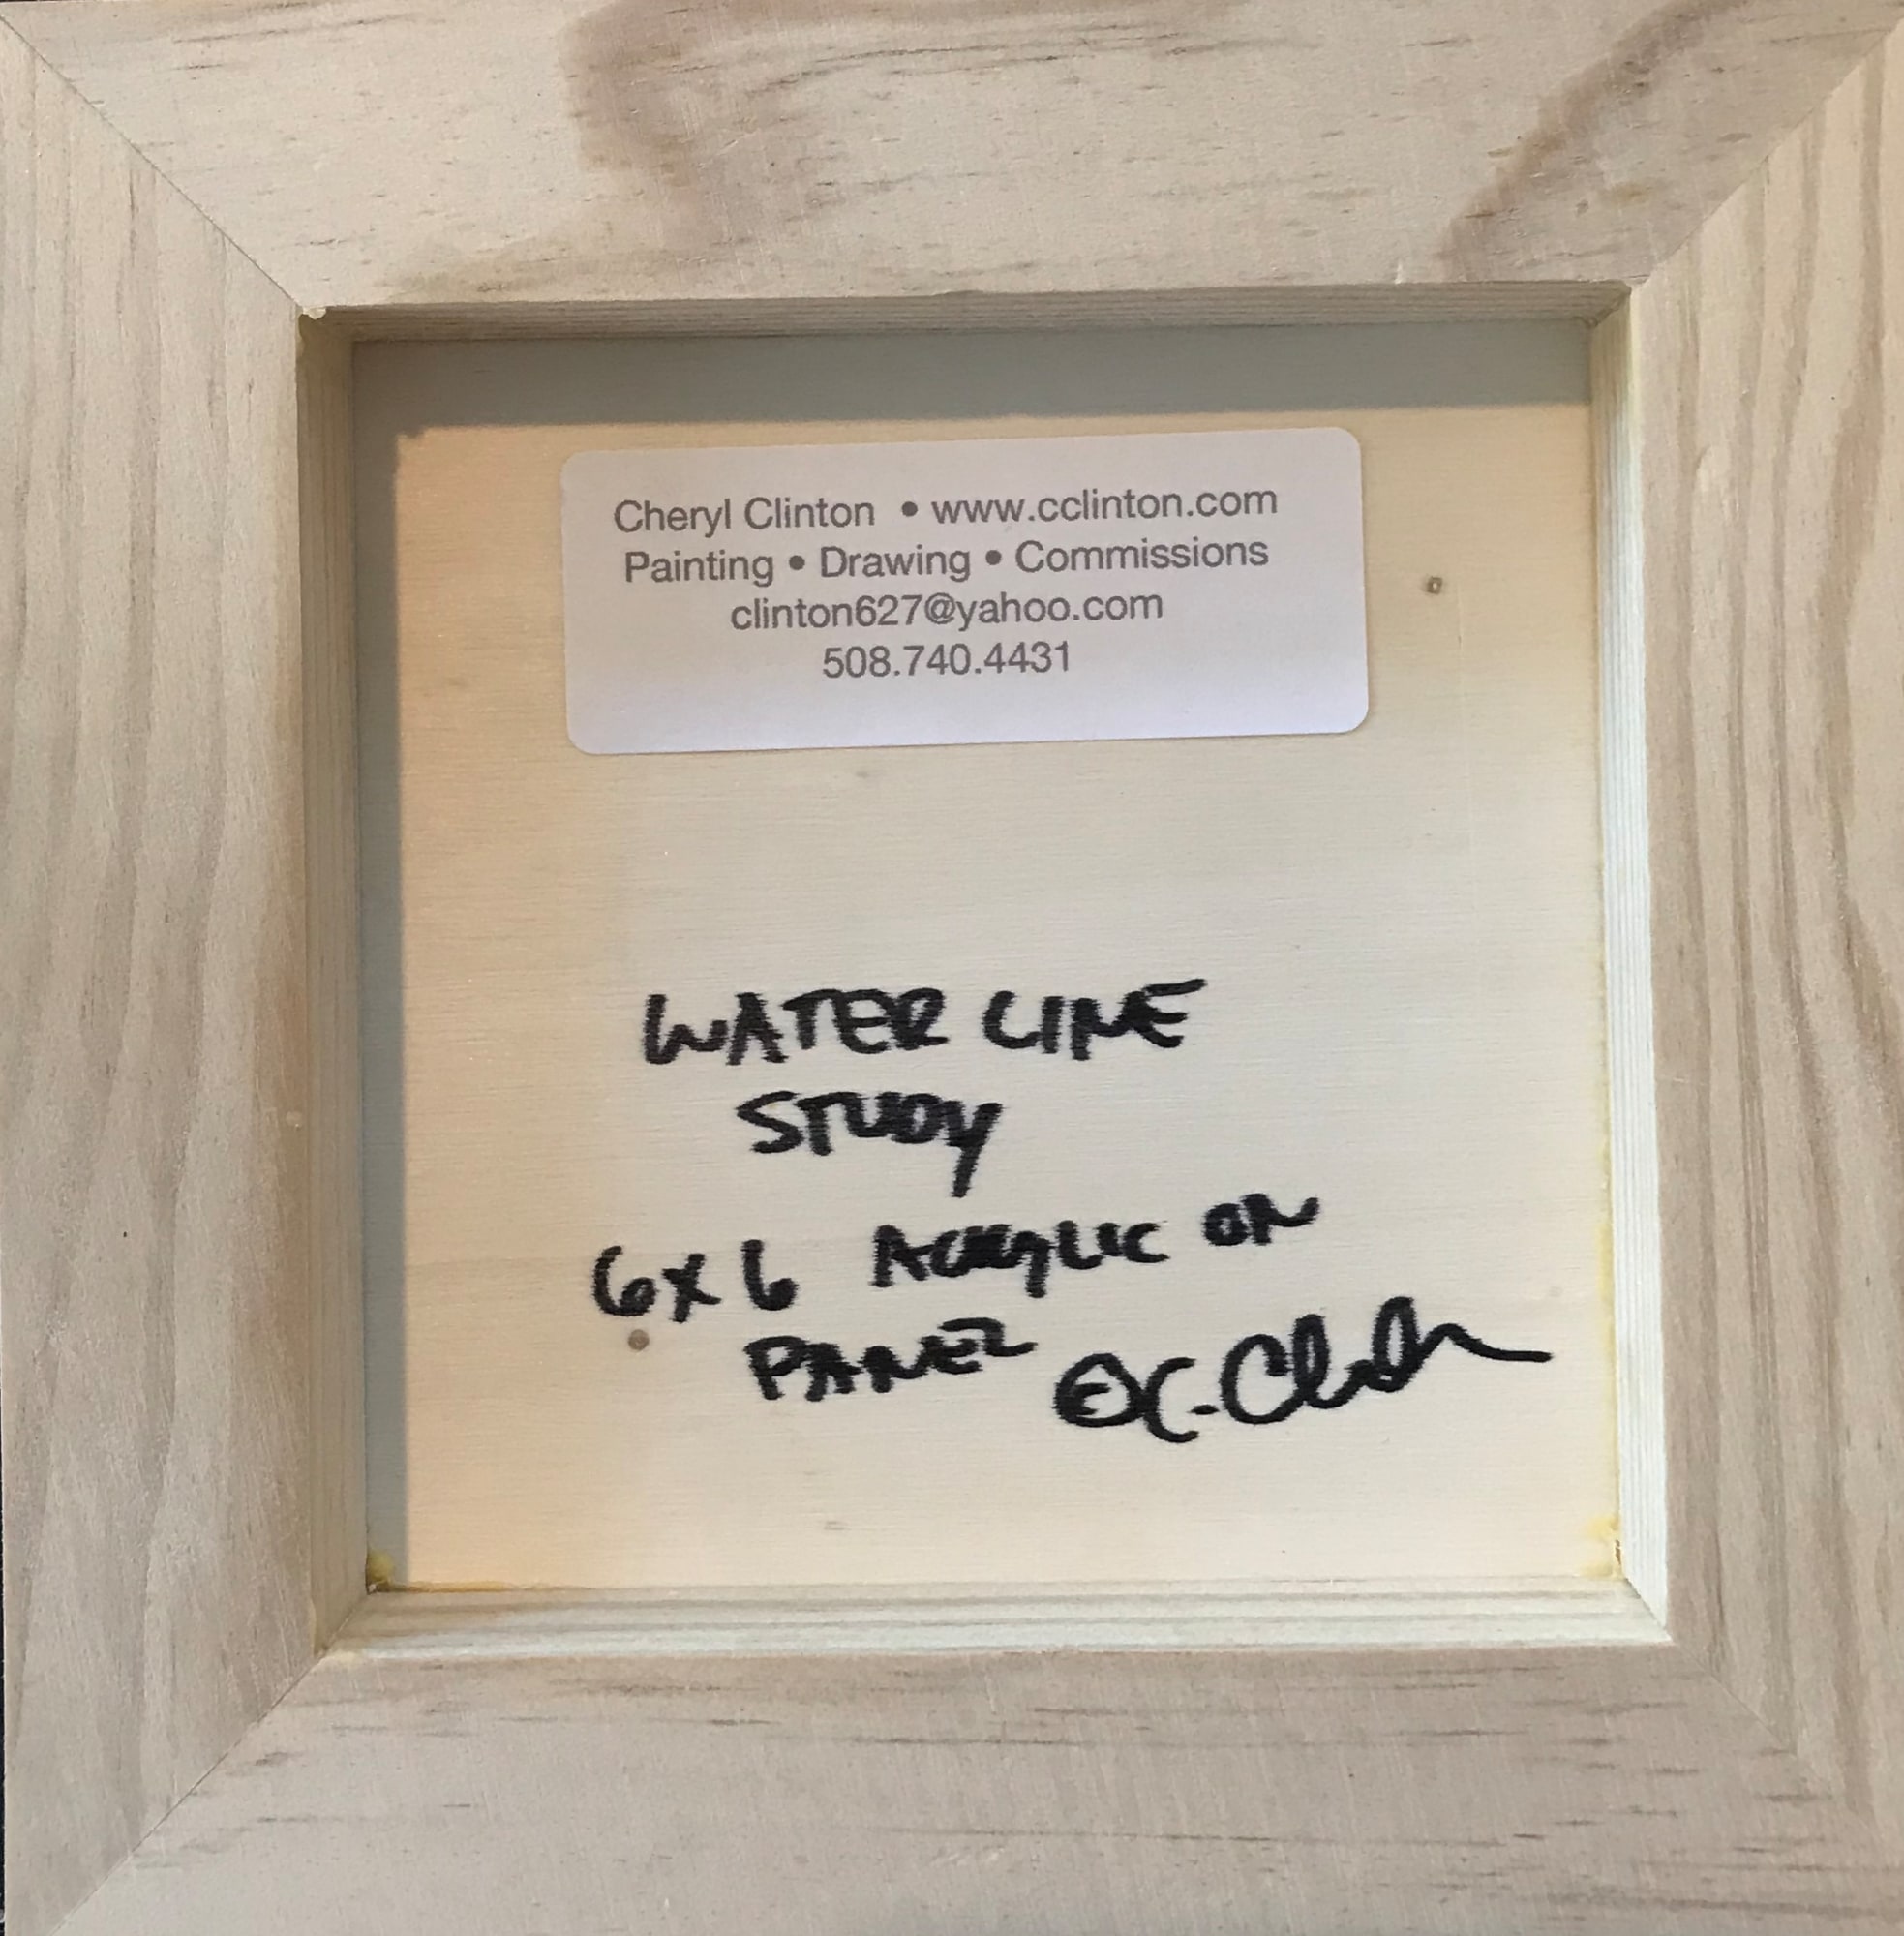 Cheryl Clinton • www.cclinton.com
Painting • Drawing • Commissions
clinton627@yahoo.com
508.740.4431
WATER LINE
STUDY
6x6 ACRYLIC ON
PANEL © C. Clinton